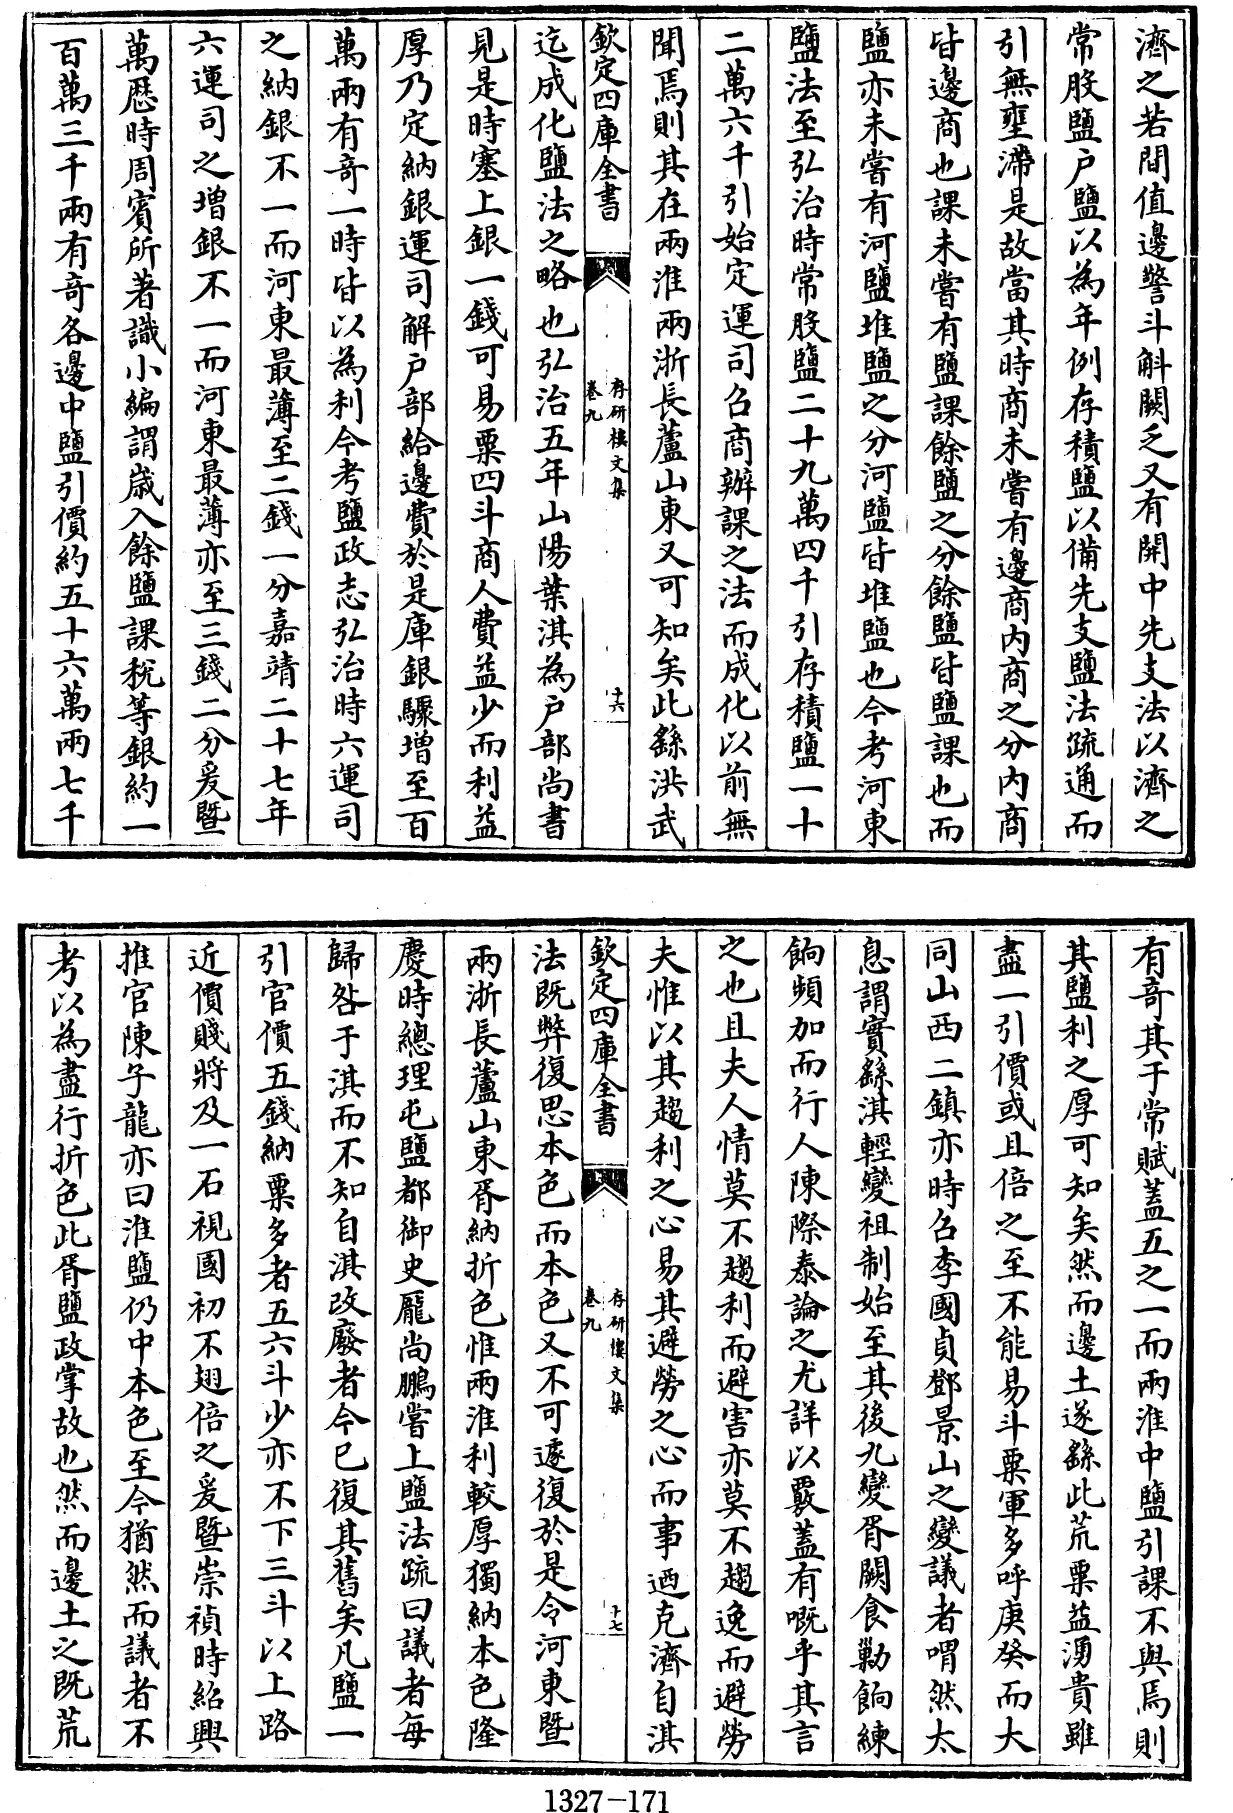 濟之若間值邊警斗斛闕乏又有開中先支法以濟之
常股鹽戶鹽以為年例存積鹽以備先支鹽法疏通而
引無壅滯是故當其時商未嘗有邊商內商之分內商
皆邊商也課未嘗有鹽課餘鹽之分餘鹽皆鹽課也而
鹽亦未嘗有河鹽堆鹽之分河鹽皆堆鹽也今考河東
鹽法至弘治時常股鹽二十九萬四千引存積鹽一十
二萬六千引始定運司召商辦課之法而成化以前無
聞焉則其在兩淮兩浙長蘆山東又可知矣此繇洪武
欽定四庫全書
存研樓文集
卷九
十六
迄成化鹽法之略也弘治五年山陽葉淇為戶部尚書
見是時塞上銀一錢可易粟四斗商人費益少而利益
厚乃定納銀運司解戶部給邊費於是庫銀驟增至百
萬兩有奇一時皆以為利今考鹽政志弘治時六運司
之納銀不一而河東最薄至二錢一分嘉靖二十七年
六運司之增銀不一而河東最薄亦至三錢二分爰暨
萬歷時周賓所著識小編謂歲入餘鹽課稅等銀約一
百萬三千兩有奇各邊中鹽引價約五十六萬兩七千
有奇其于常賦蓋五之一而兩淮中鹽引課不與焉則
其鹽利之厚可知矣然而邊土遂繇此荒粟益湧貴雖
盡一引價或且倍之至不能易斗粟軍多呼庚癸而大
同山西二鎮亦時召李國貞鄧景山之變議者喟然太
息謂實繇淇輕變祖制始至其後九變胥闕食勦餉練
餉頻加而行人陳際泰論之尤詳以覈蓋有嘅乎其言
之也且夫人情莫不趨利而避害亦莫不趨逸而避勞
夫惟以其趨利之心易其避勞之心而事迺克濟自淇
欽定四庫全書
存研樓文集
卷九
十七
法既弊復思本色而本色又不可遽復於是令河東暨
兩浙長蘆山東胥納折色惟兩淮利較厚獨納本色隆
慶時總理屯鹽都御史龐尚鵬嘗上鹽法疏曰議者每
歸咎于淇而不知自淇改廢者今已復其舊矣凡鹽一
引官價五錢納粟多者五六斗少亦不下三斗以上路
近價賤將及一石視國初不翅倍之爰暨崇禎時紹興
推官陳子龍亦曰淮鹽仍中本色至今猶然而議者不
考以為盡行折色此胥鹽政掌故也然而邊土之既荒
1327-171